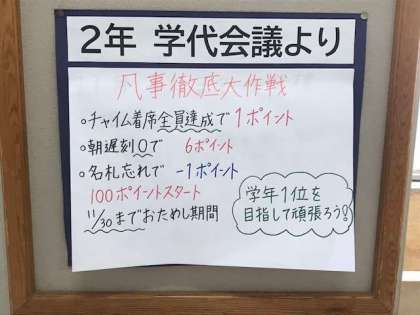 2年 学代会議より
凡事徹底大作戦
○チャイム着席全員達成で 1ポイント
○朝遅刻0で 6ポイント
○名札忘れで -1ポイント
100ポイントスタート
11/30までおためし期間
学年1位を
目指して頑張ろう!